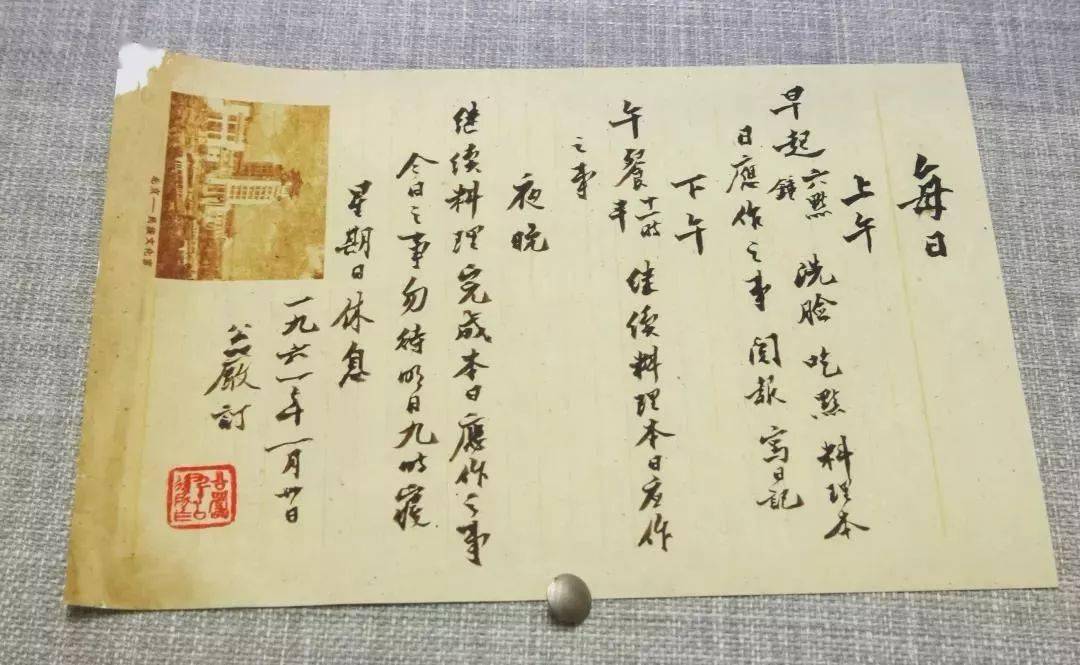 每日
上午
早起六點鐘 洗脸吃點料理本
日應作之事 閱報 寫日記
下午
午餐十一时半 继續料理本日应作
之事
夜晚
继續料理完成本日應作之事
今日之事勿待明日九时寢
星期日休息
一九六一年一月廿日
厰訂
北京—民族文化宮